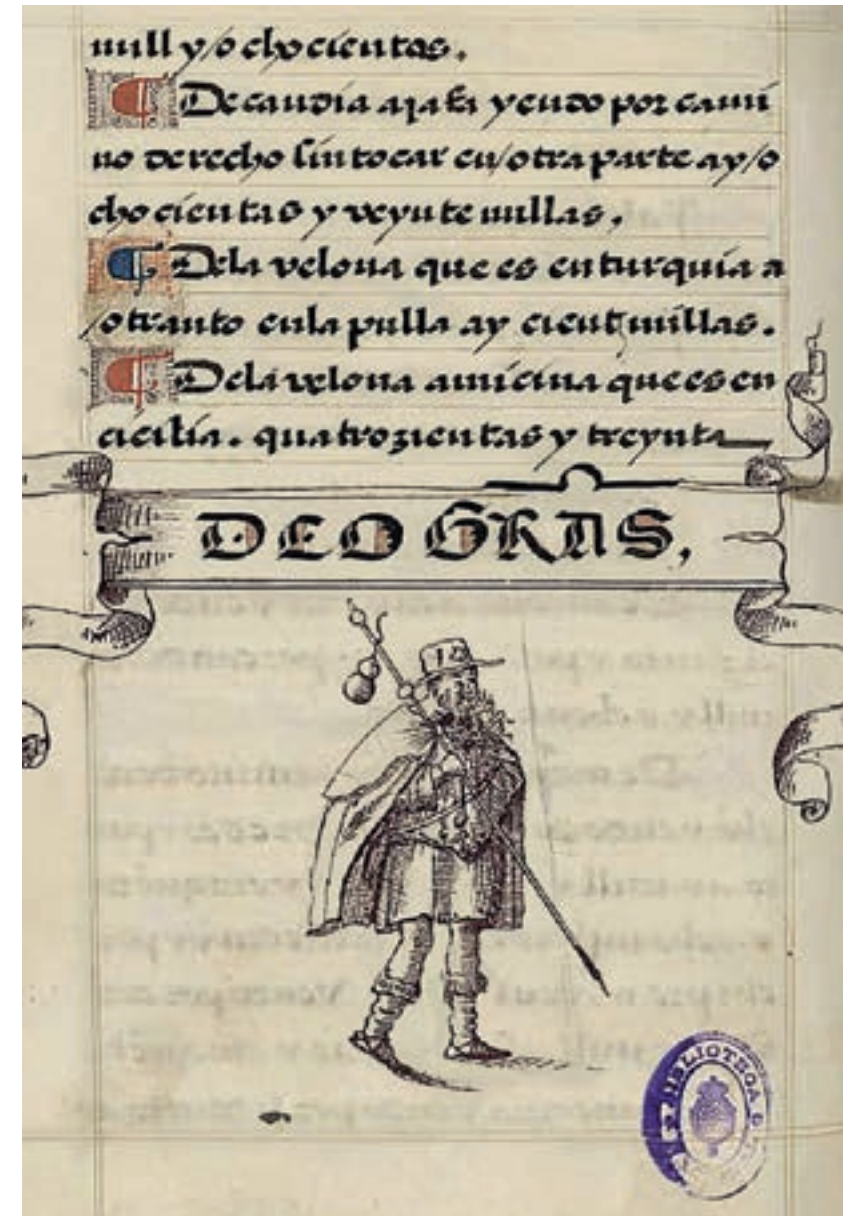 mill y/o chocientas.
De candia a jafa yendo por cami
no derecho sin tocar en/otra parte ay/o
chocientas y veynte millas.
Dela velona que es en turquia a
/otranto enla pulla ay cient millas.
Dela velona amicina que es en
cicilia. quatrozientas y treynta
DEO GRAS,
BIBLIOTECA